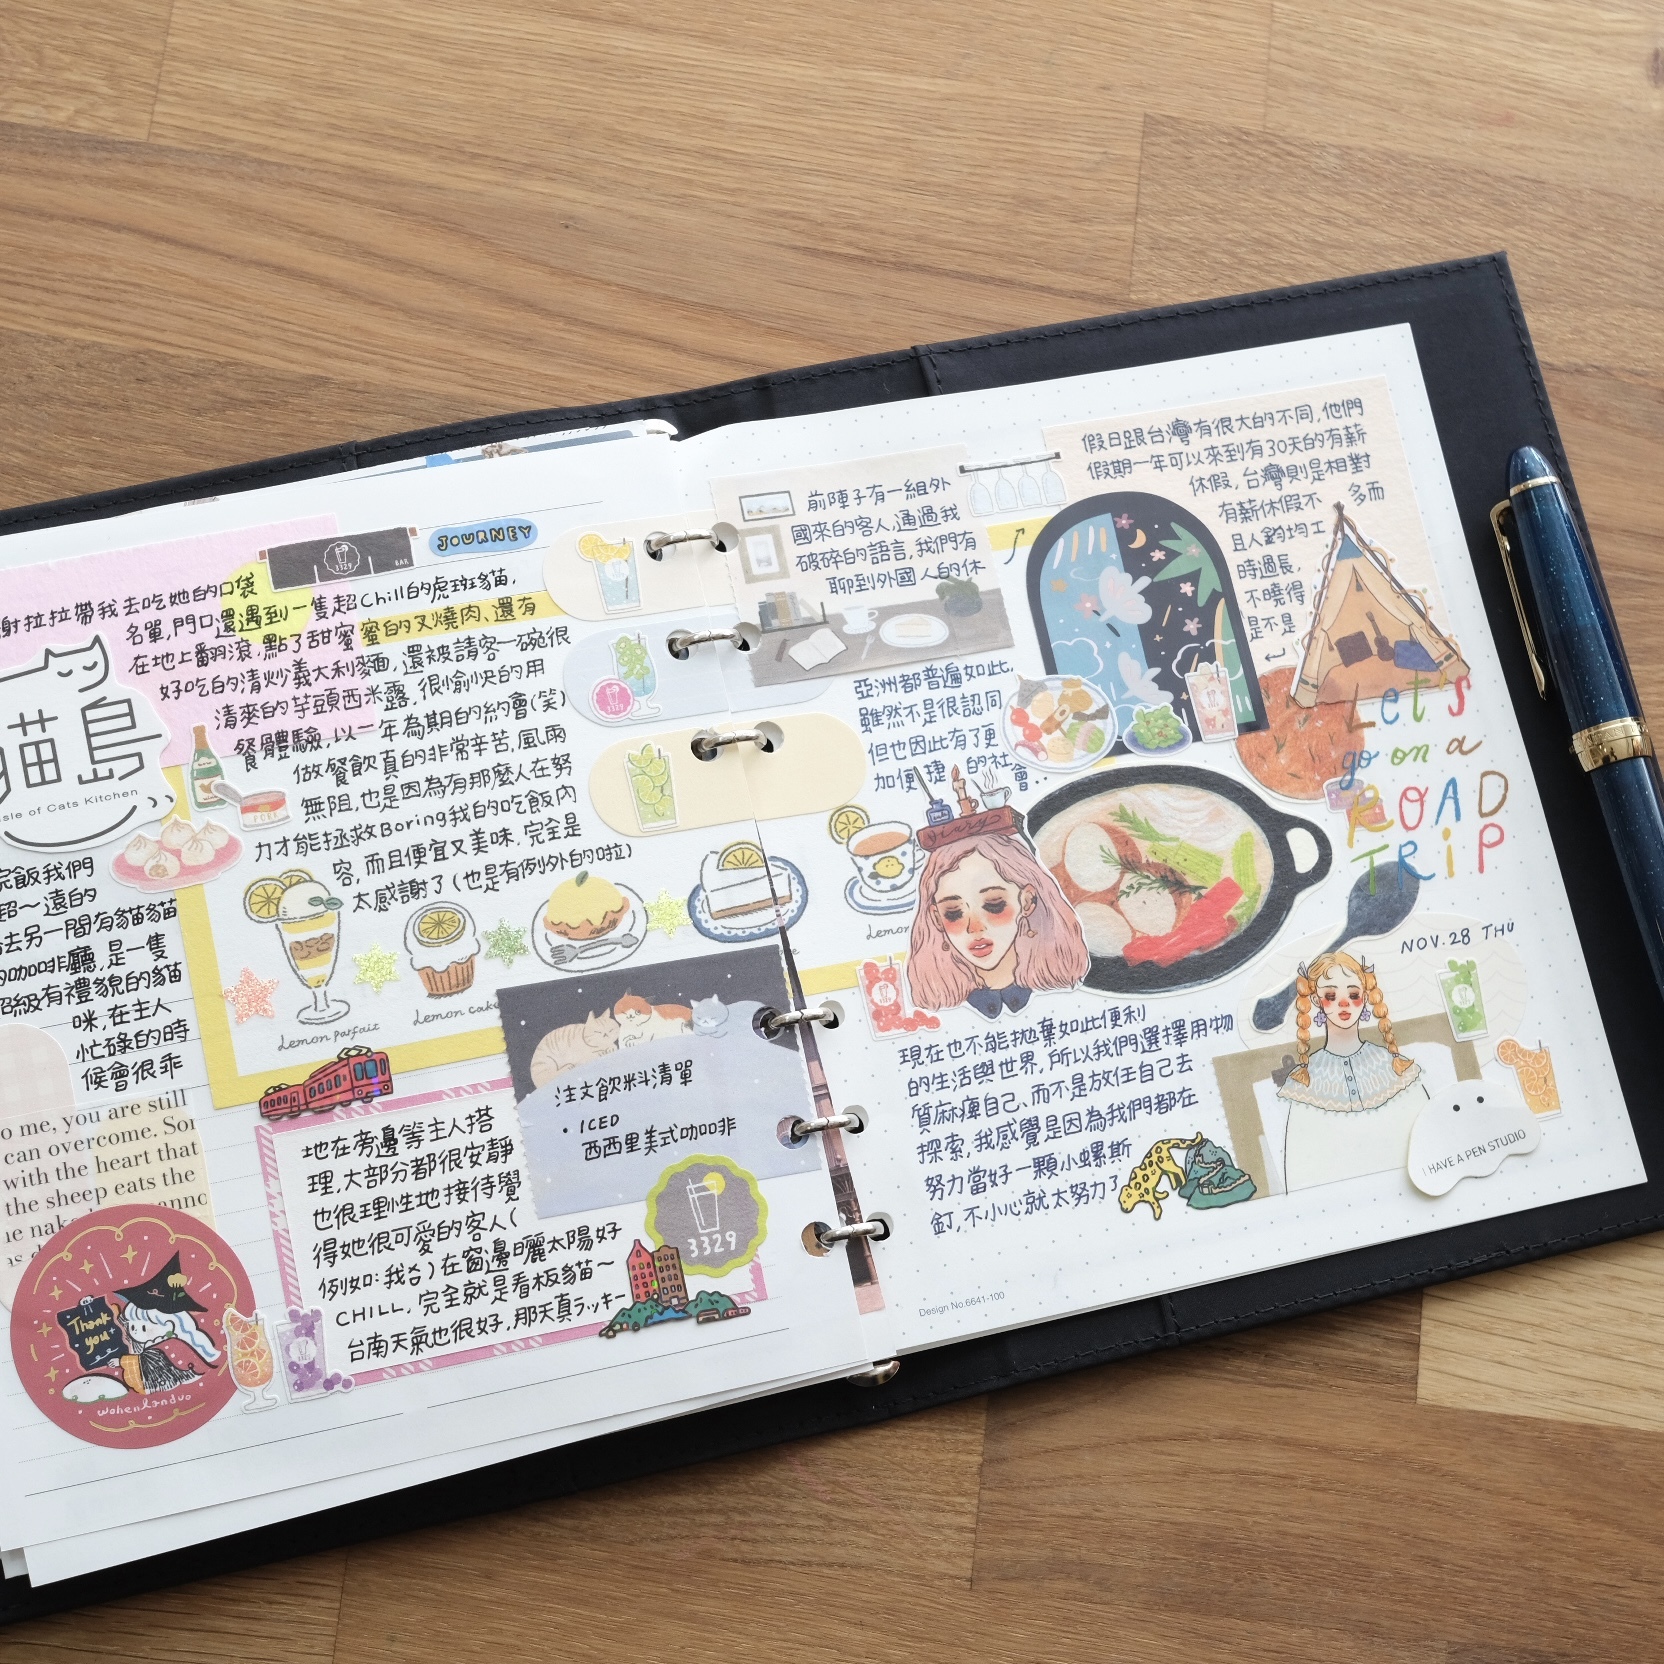 JOURNEY
3329
BAR
謝拉拉帶我去吃她的口袋
名單,門口還遇到一隻超Chill的虎斑貓,
在地上翻滾,點了甜蜜蜜的叉燒肉、還有
好吃的清炒義大利麵,還被請客一碗很
清爽的芋頭西米露,很愉快的用
餐體驗,以一年為期的約會(笑)
做餐飲真的非常辛苦,風雨
無阻,也是因為有那麼人在努
力才能拯救Boring我的吃飯內
容,而且便宜又美味,完全是
太感謝了(也是有例外的啦)
貓島
Isle of Cats Kitchen
PORK
完飯我們
超~遠的
去另一間有貓貓
的咖啡廳,是一隻
超級有禮貌的貓
咪,在主人
忙碌的時
候會很乖
Lemon parfait
Lemon cake
o me, you are still
can overcome. Sor
with the heart that
the sheep eats the
Thank
you
wohenlanduo
地在旁邊等主人搭
理,大部分都很安靜
也很理性地接待覺
得她很可愛的客人(
例如:我合)在窗邊曬太陽好
CHILL,完全就是看板貓~
台南天氣也很好,那天真ラッキー
注文飲料清單
・ICED
西西里美式咖啡
3329
前陣子有一組外
國來的客人,通過我
破碎的語言,我們有
聊到外國人的休
假日跟台灣有很大的不同,他們
假期一年可以來到有30天的有薪
休假,台灣則是相對
有薪休假不多而
且人的均工
時過長,
不曉得
是不是
亞洲都普遍如此,
雖然不是很認同
但也因此有了更
加便捷的社會..
diary
Lemon
Let's
go on a
ROAD
TRIP
NOV.28 THU
現在也不能拋棄如此便利
的生活與世界,所以我們選擇用物
質麻痺自己、而不是放任自己去
探索,我感覺是因為我們都在
努力當好一顆小螺斯
釘,不小心就太努力了
I HAVE A PEN STUDIO
Design No.6641-100